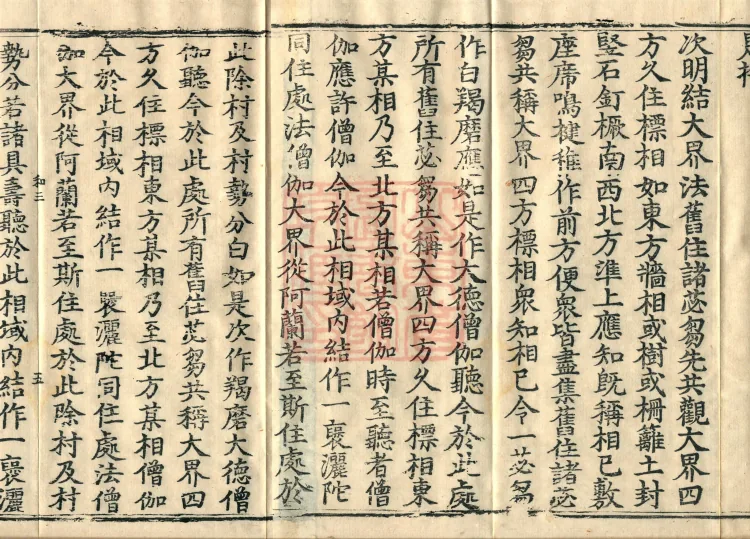 次明結大界法舊住諸苾芻先共觀大界四
方久住標相如東方牆相或樹或柵籬土封
竪石釘橛南西北方準上應知旣稱相已敷
座席鳴犍稚作前方便衆皆盡集舊住諸苾
芻共稱大界四方標相衆知相已令一苾芻
作白羯磨應如是作大德僧伽聽今於此處
所有舊住苾芻共稱大界四方久住標相東
方某相乃至北方某相若僧伽時至聽者僧
伽應許僧伽今於此相域內結作一褒灑陀
同住處法僧伽大界從阿蘭若至斯住處於
此除村及村勢分白如是次作羯磨大德僧
伽聽今於此處所有舊住苾芻共稱大界四
方久住標相東方某相乃至北方某相僧伽
今於此相域內結作一褒灑陀同住處法僧
伽大界從阿蘭若至斯住處於此除村及村
和三 五
勢分若諸具壽聽於此相域內結作一褒灑